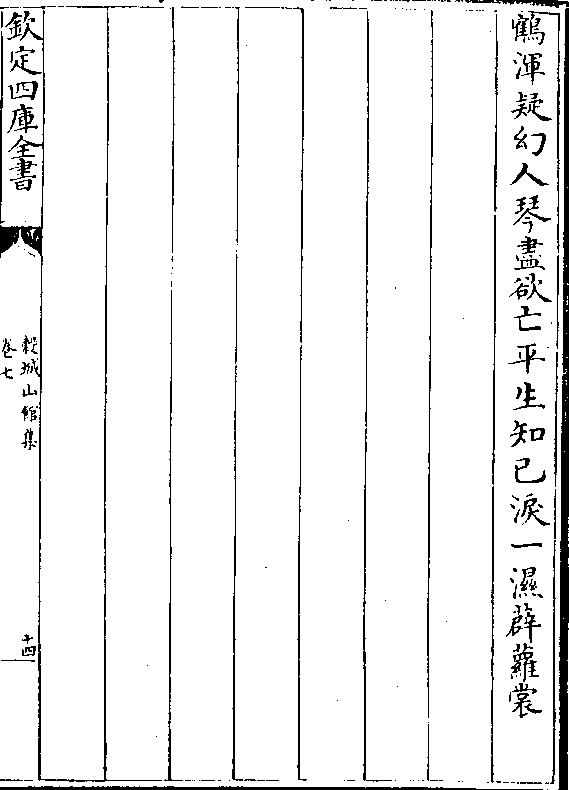 鶴渾疑幻人琴盡欲亡平生知已淚一濕薜蘿裳
欽定四庫全書
穀城山館集
卷七
十四